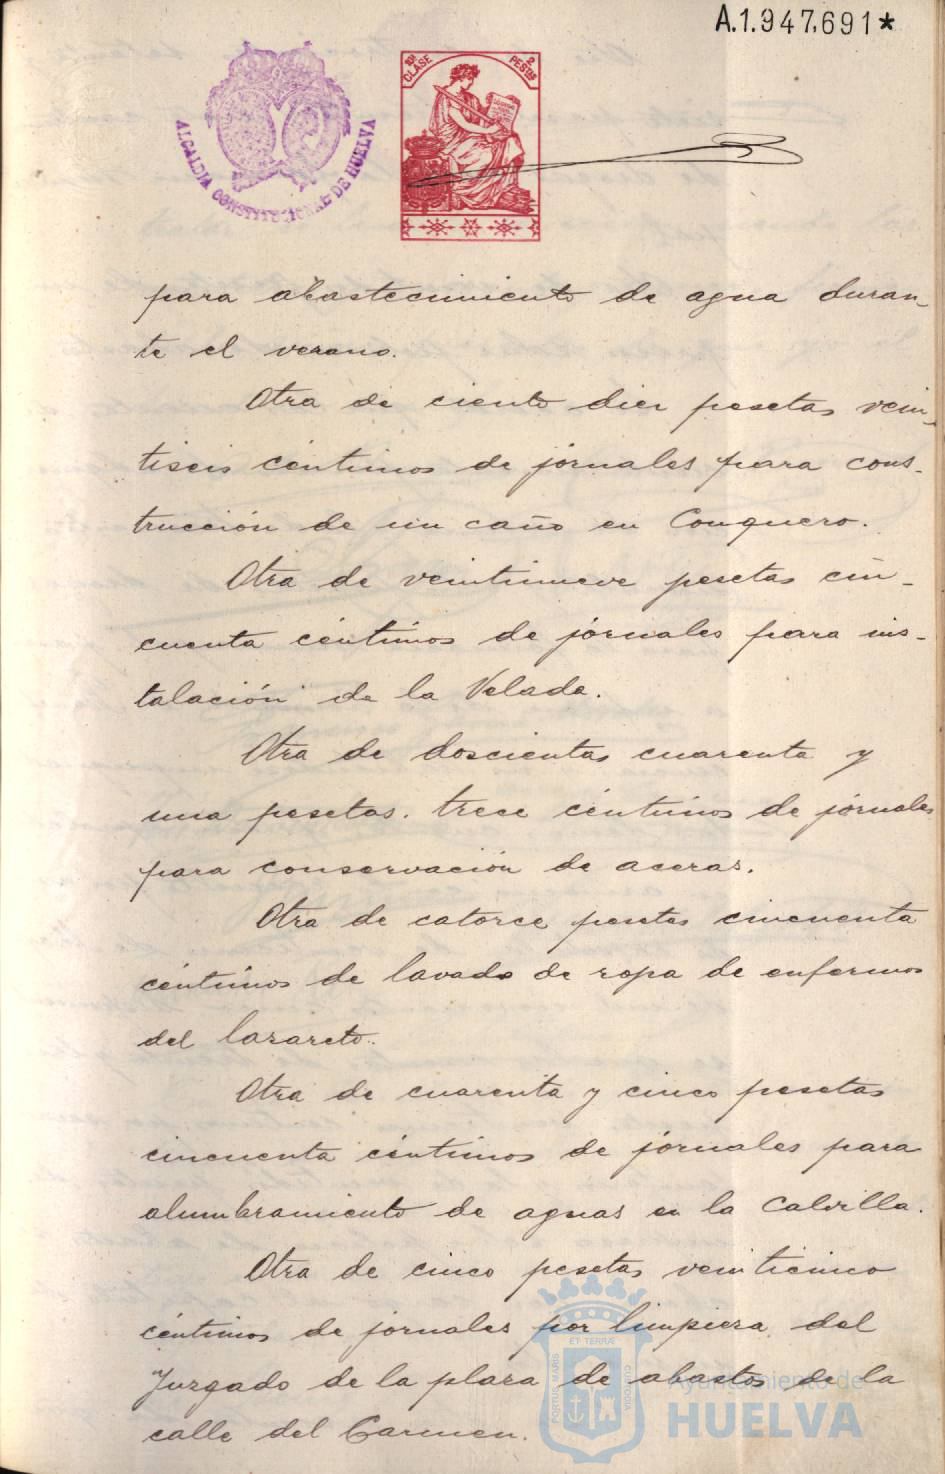 A.1.947.691*
ALCALDIA CONSTITUCIONAL DE HUELVA
10ª CLASE
2 PESETAS
para abastecimiento de agua duran-
te el verano.
Otra de ciento diez pesetas vein-
tiseis céntimos de jornales para cons-
trucción de un caño en Conquero.
Otra de veintinueve pesetas cin-
cuenta céntimos de jornales para ins-
talación de la Velada.
Otra de doscientas cuarenta y
una pesetas. trece céntimos de jornales
para conservación de aceras.
Otra de catorce pesetas cincuenta
céntimos de lavado de ropa de enfermos
del lazareto.
Otra de cuarenta y cinco pesetas
cincuenta céntimos de jornales para
alumbramiento de aguas en la Calvilla.
Otra de cinco pesetas veinticinco
céntimos de jornales por limpieza del
Juzgado de la plaza de abastos de la
calle del Carmen.
ET TERRÆ
PORTUS MARIS
CUSTODIA
Ayuntamiento de
HUELVA